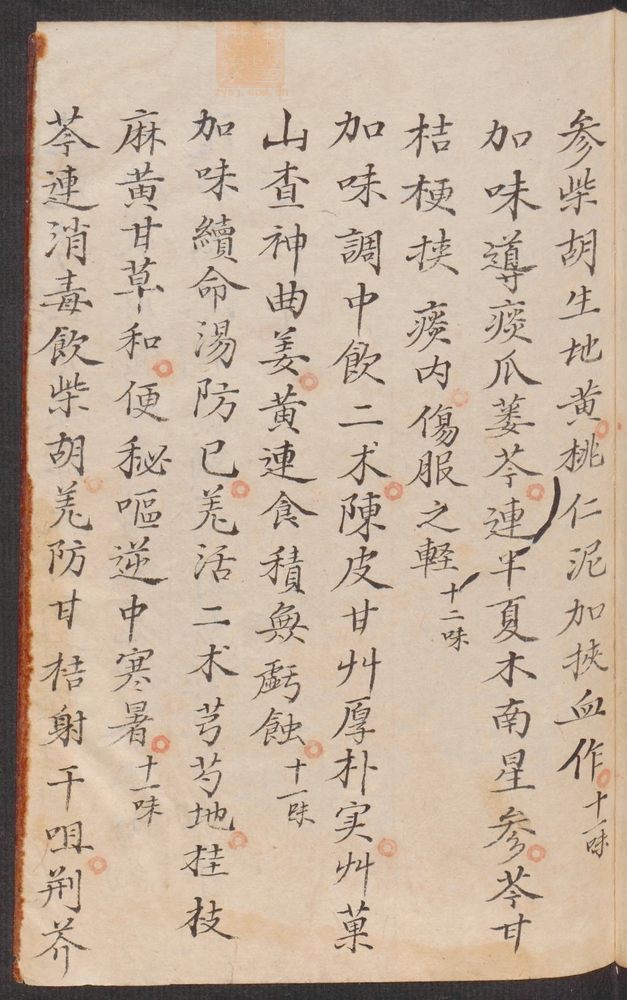 参柴胡生地黄桃仁泥加挾血作十一味
加味導痰瓜蒌芩連半夏木南星参苓甘
桔梗挾痰内傷服之軽十二味
加味調中飲二术陳皮甘艸厚朴实艸菓
山查神曲姜黄連食積無虧蝕十一味
加味續命湯防已羌活二术芎芍地桂枝
麻黄甘草和便秘嘔逆中寒暑十一味
芩連消毒飲柴胡羌防甘桔射干咀荆芥